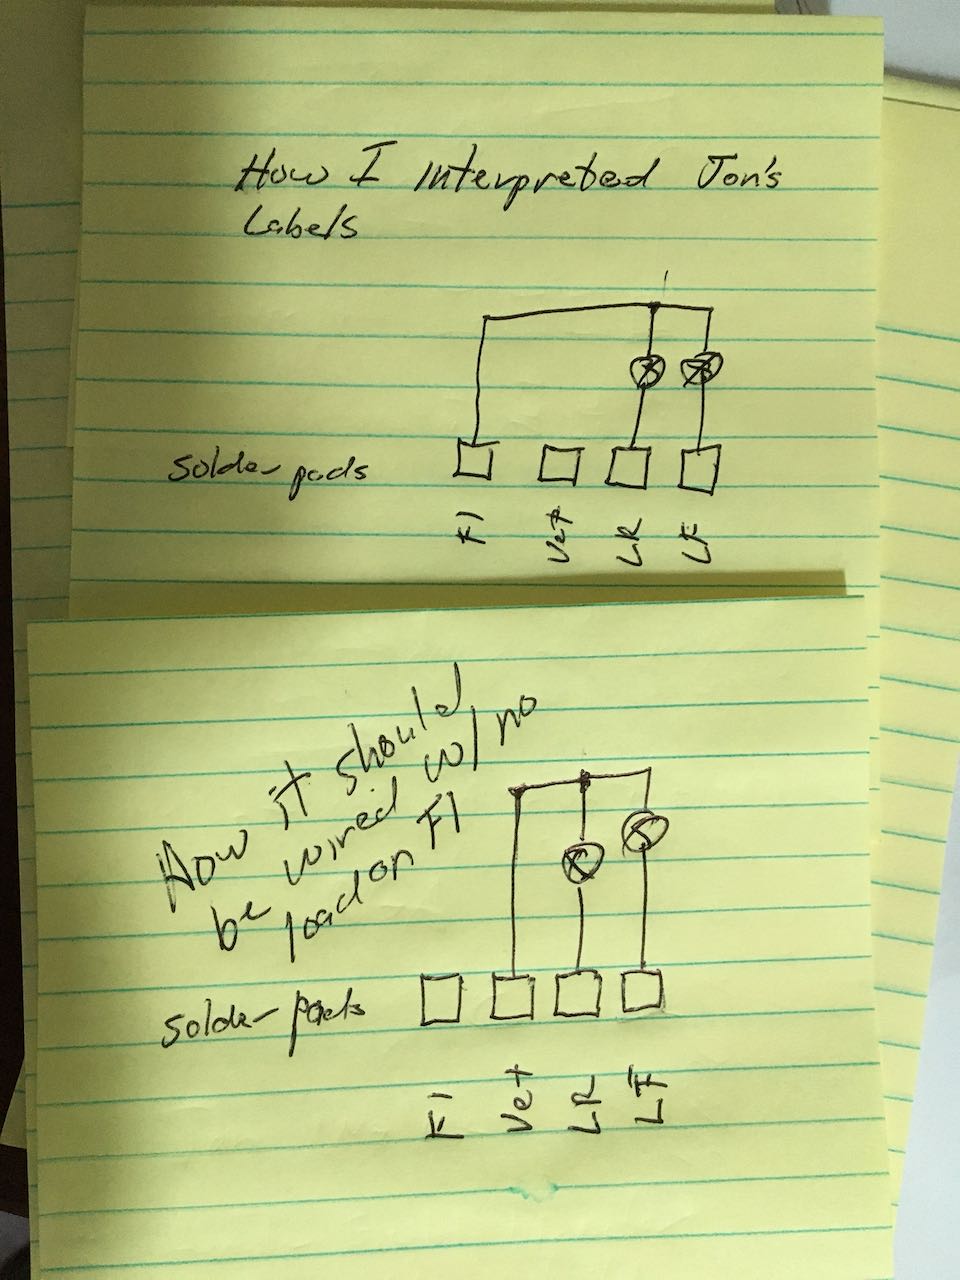 How I Interpreted Jon's
Labels
Solder pads
F1 Vet LR LF
How it should
be wired w/ no
load on F1
Solder pads
F1 Vet LR LF